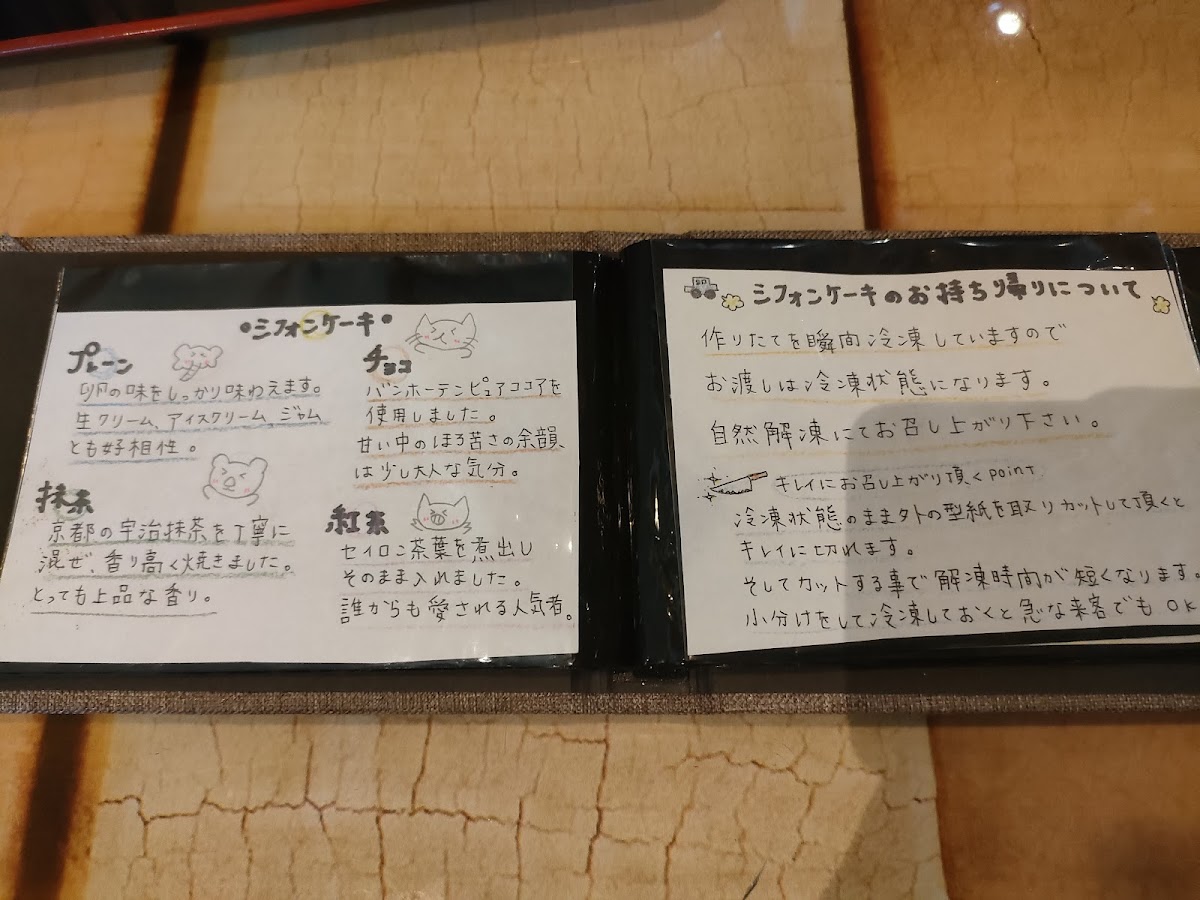 •シフォンケーキ•
プレーン
卵の味をしっかり味わえます。
生クリーム、アイスクリーム、ジャム
とも好相性。
抹茶
京都の宇治抹茶を丁寧に
混ぜ、香り高く焼きました。
とっても上品な香り。
チョコ
バンホーテンピュアココアを
使用しました。
甘い中のほろ苦さの余韻
は少し大人な気分。
紅茶
セイロン茶葉を煮出し
そのまま入れました。
誰からも愛される人気者。
シフォンケーキのお持ち帰りについて
作りたてを瞬間冷凍していますので
お渡しは冷凍状態になります。
自然解凍にてお召し上がり下さい。
キレイにお召し上がり頂くpoint
冷凍状態のまま外の型紙を取りカットして頂くと
キレイに切れます。
そしてカットする事で解凍時間が短くなります。
小分けをして冷凍しておくと急な来客でもOK